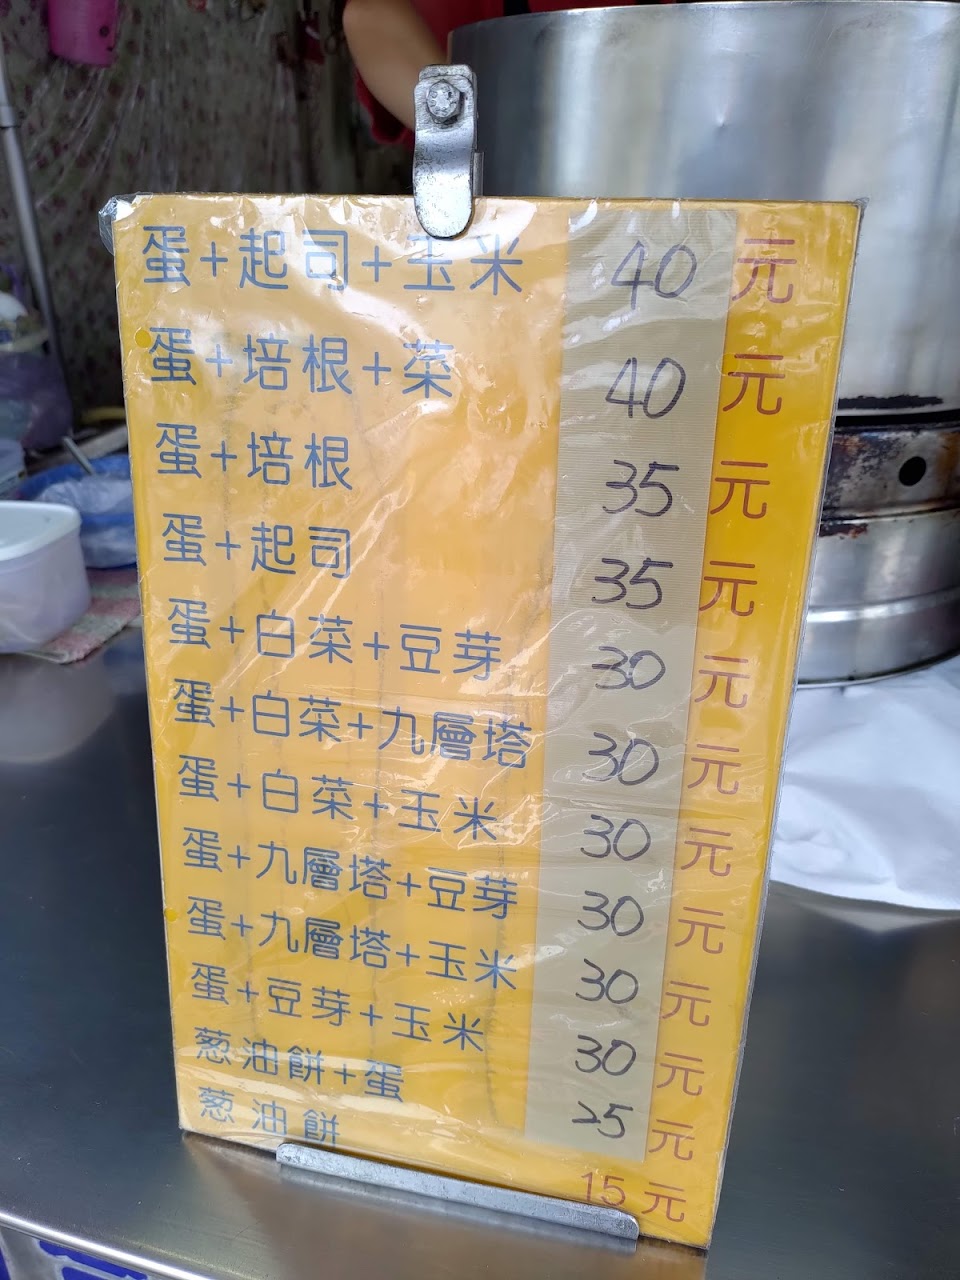 蛋+起司+玉米 40 元
蛋+培根+菜 40 元
蛋+培根 35 元
蛋+起司 35 元
蛋+白菜+豆芽 30 元
蛋+白菜+九層塔 30 元
蛋+白菜+玉米 30 元
蛋+九層塔+豆芽 30 元
蛋+九層塔+玉米 30 元
蛋+豆芽+玉米 30 元
葱油餅+蛋 25 元
葱油餅 15 元